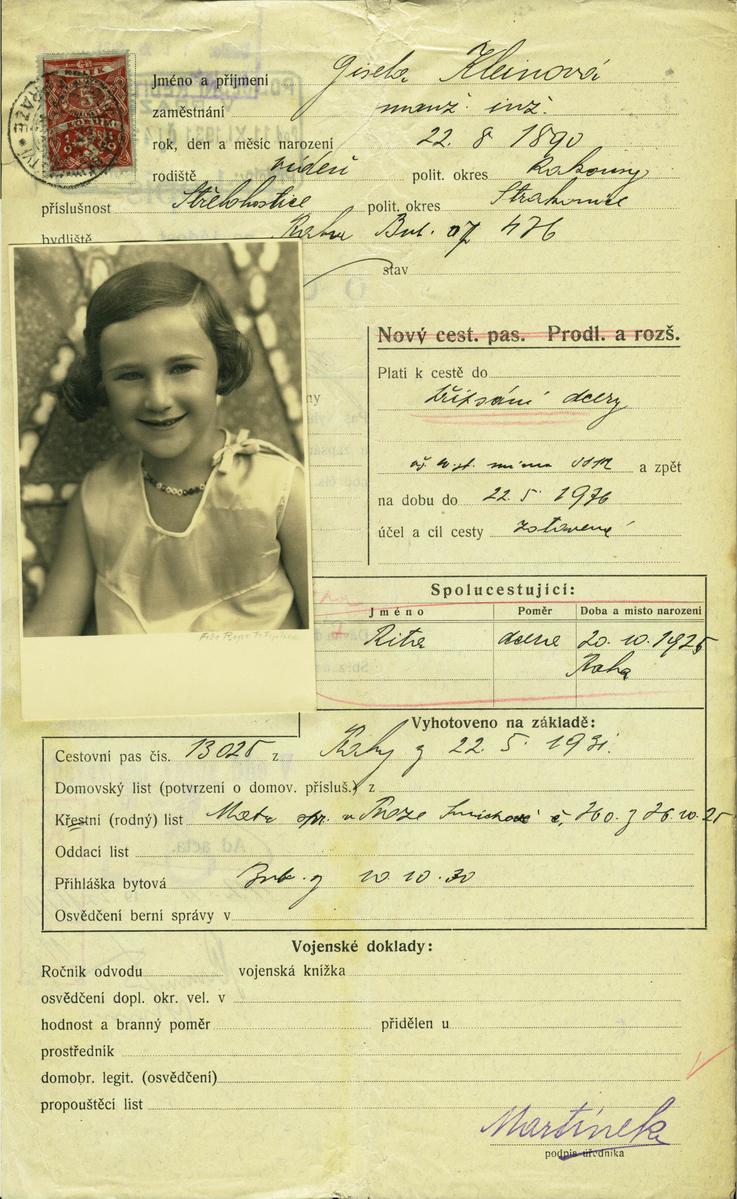 Jméno a příjmení Gisela Kleinová
zaměstnání manž. inž.
rok, den a měsíc narození 22. 8. 1890
rodiště polit. okres
příslušnost Střelohostice polit. okres Strakonice
bydliště Bub. 476
stav
Nový cest. pas. Prodl. a rozš.
Platí k cestě do
připsání dcery
a zpět
na dobu do 22. 5. 1936
účel a cíl cesty
Spolucestující:
Jméno Poměr Doba a místo narození
Rita dcera 20. 10. 1925
Praha
Vyhotoveno na základě:
Cestovní pas čís. 13025 z Prahy z 22. 5. 1931.
Domovský list (potvrzení o domov. přísluš.) z
Křestní (rodný) list Matr. v Praze Smíchově č. 260. z 26. 10. 25
Oddací list
Přihláška bytová Bub. z 10. 10. 30
Osvědčení berní správy v
Vojenské doklady:
Ročník odvodu vojenská knížka
osvědčení dopl. okr. vel. v
hodnost a branný poměr přidělen u
prostředník
domobr. legit. (osvědčení)
propouštěcí list
Martínek
podpis úředníka
Ad acta.